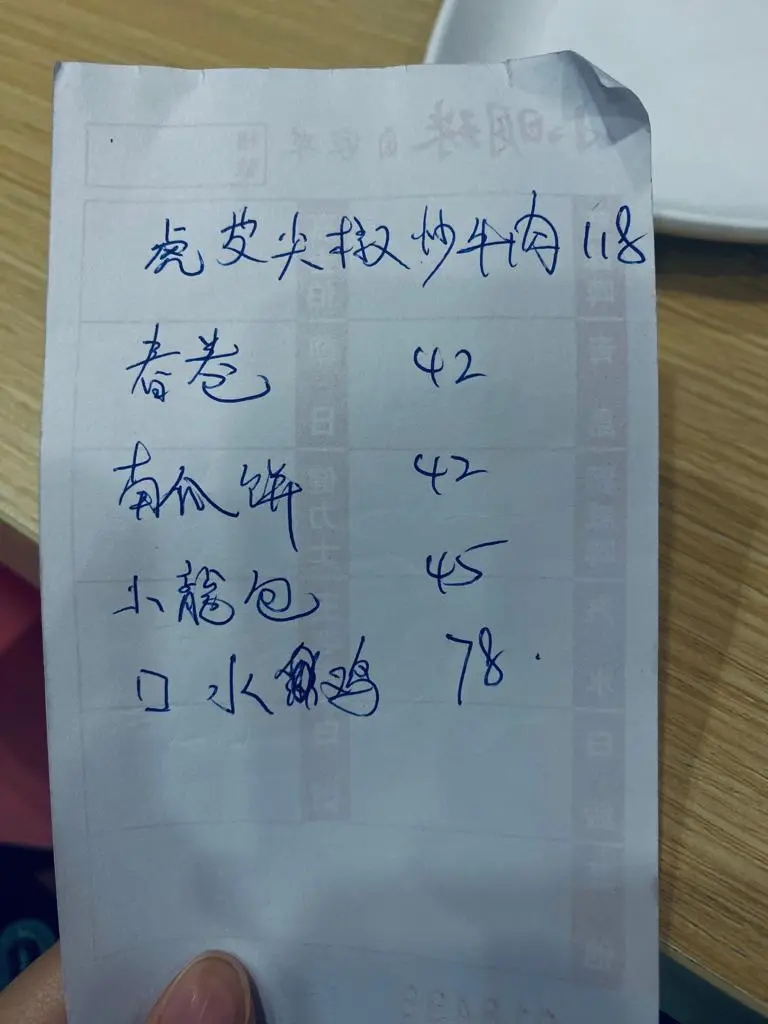 虎皮尖椒炒牛肉 118
春卷 42
南瓜饼 42
小龍包 45
口水鸡 78.